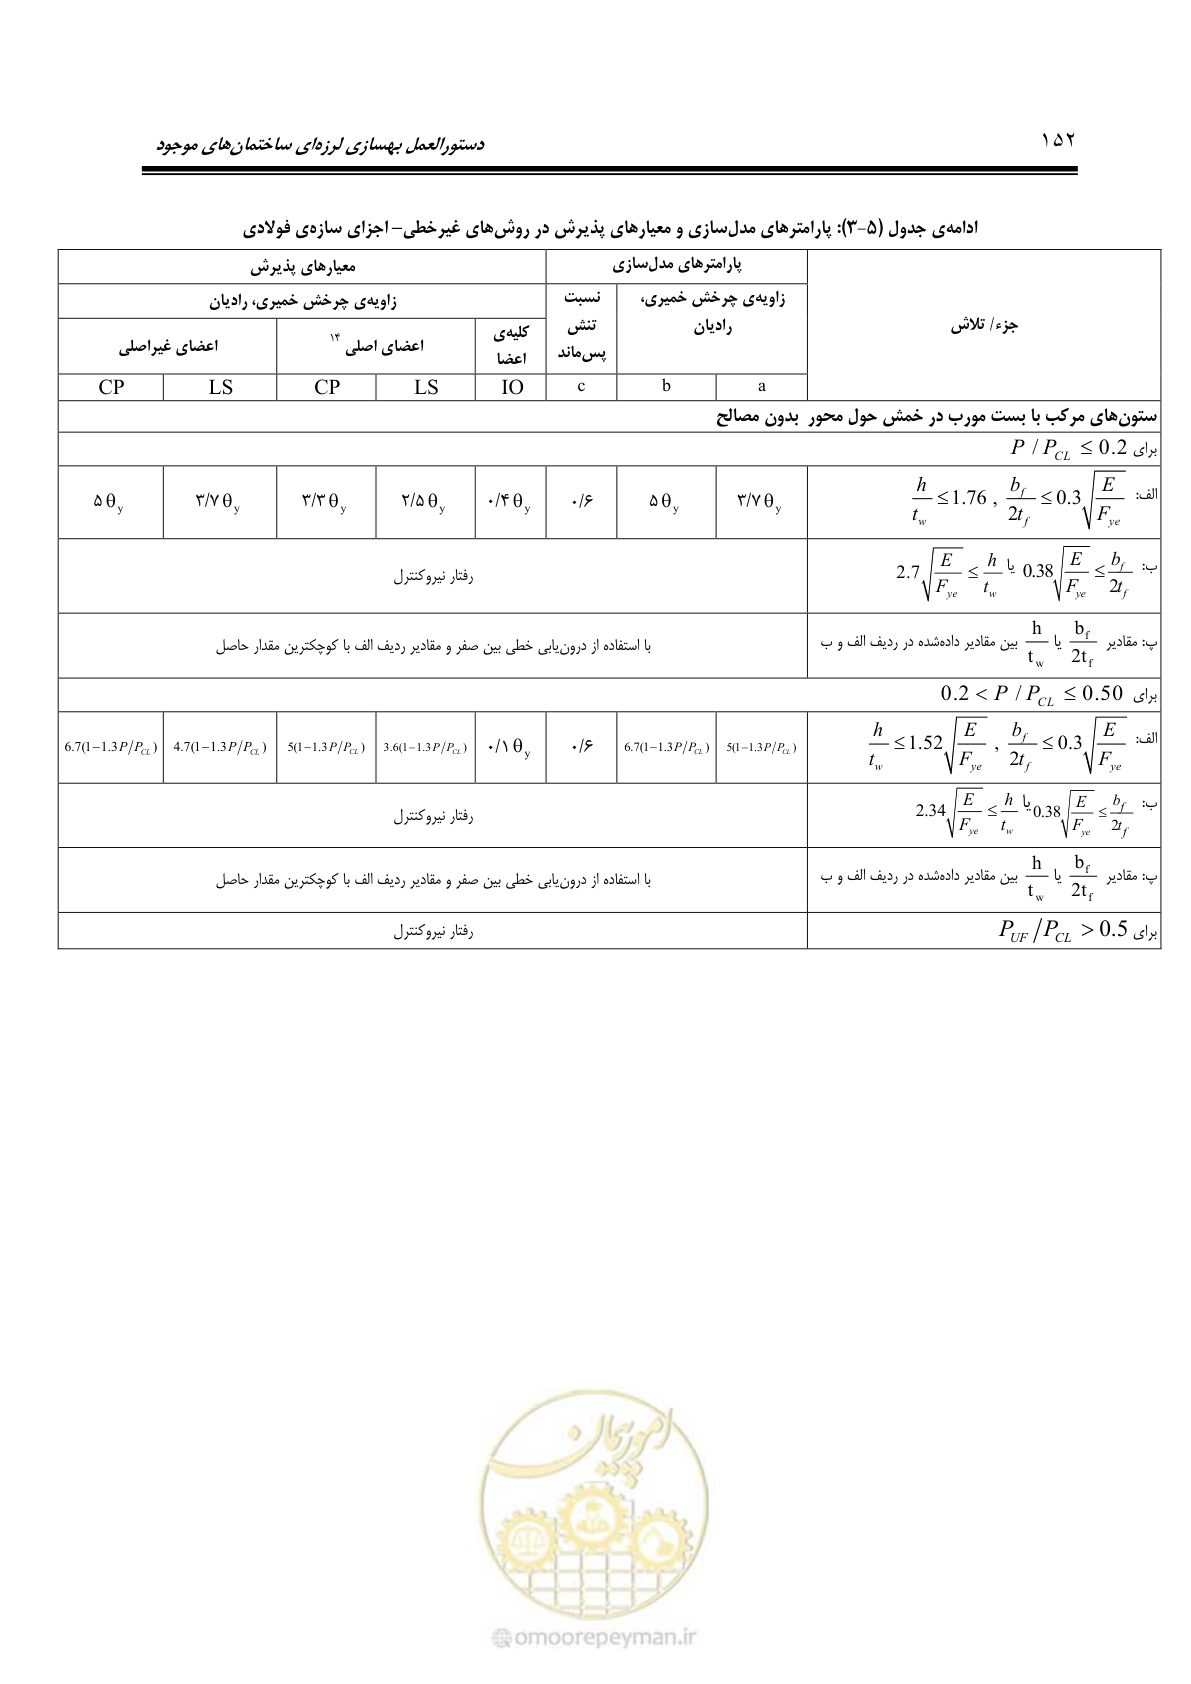 ۱۵۲
دستورالعمل بهسازی لرزه‌ای ساختمان‌های موجود
ادامه‌ی جدول (۵-۳): پارامترهای مدل‌سازی و معیارهای پذیرش در روش‌های غیرخطی– اجزای سازه‌ی فولادی
جزء/ تلاش
پارامترهای مدل‌سازی
معیارهای پذیرش
زاویه‌ی چرخش خمیری،
رادیان
نسبت
تنش
پس‌ماند
زاویه‌ی چرخش خمیری، رادیان
کلیه‌ی
اعضا
اعضای اصلی ۱۴
اعضای غیراصلی
a b c IO LS CP LS CP
ستون‌های مرکب با بست مورب در خمش حول محور بدون مصالح
برای P / P_CL ≤ 0.2
الف: h/t_w ≤ 1.76 , b_f/2t_f ≤ 0.3√(E/F_ye)
۳/۷ θ_y ۵ θ_y ۰/۶ ۰/۴ θ_y ۲/۵ θ_y ۳/۳ θ_y ۳/۷ θ_y ۵ θ_y
ب: 0.38√(E/F_ye) ≤ b_f/2t_f یا 2.7√(E/F_ye) ≤ h/t_w
رفتار نیروکنترل
پ: مقادیر b_f/2t_f یا h/t_w بین مقادیر داده‌شده در ردیف الف و ب
با استفاده از درون‌یابی خطی بین صفر و مقادیر ردیف الف با کوچکترین مقدار حاصل
برای 0.2 < P / P_CL ≤ 0.50
الف: h/t_w ≤ 1.52√(E/F_ye) , b_f/2t_f ≤ 0.3√(E/F_ye)
5(1−1.3P/P_CL) 6.7(1−1.3P/P_CL) ۰/۶ ۰/۱ θ_y 3.6(1−1.3P/P_CL) 5(1−1.3P/P_CL) 4.7(1−1.3P/P_CL) 6.7(1−1.3P/P_CL)
ب: 0.38√(E/F_ye) ≤ b_f/2t_f یا 2.34√(E/F_ye) ≤ h/t_w
رفتار نیروکنترل
پ: مقادیر b_f/2t_f یا h/t_w بین مقادیر داده‌شده در ردیف الف و ب
با استفاده از درون‌یابی خطی بین صفر و مقادیر ردیف الف با کوچکترین مقدار حاصل
برای P_UF/P_CL > 0.5
رفتار نیروکنترل
امور پیمان
omoorepeyman.ir